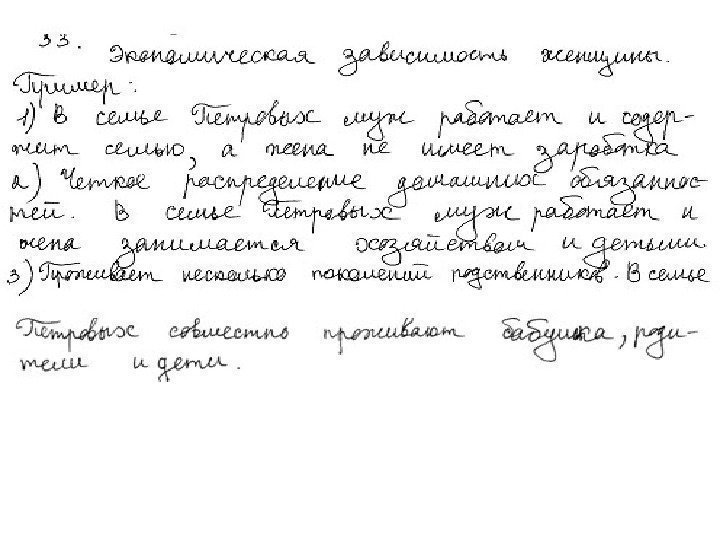 33. Экономическая зависимость женщины.
Пример:
1) В семье Петровых муж работает и содер-
жит семью, а жена не имеет заработка
2) Четкое распределение домашних обязаннос-
тей. В семье Петровых муж работает и
жена занимается хозяйством и детьми
3) Проживает несколько поколений родственников. В семье
Петровых совместно проживают бабушка, роди-
тели и дети.